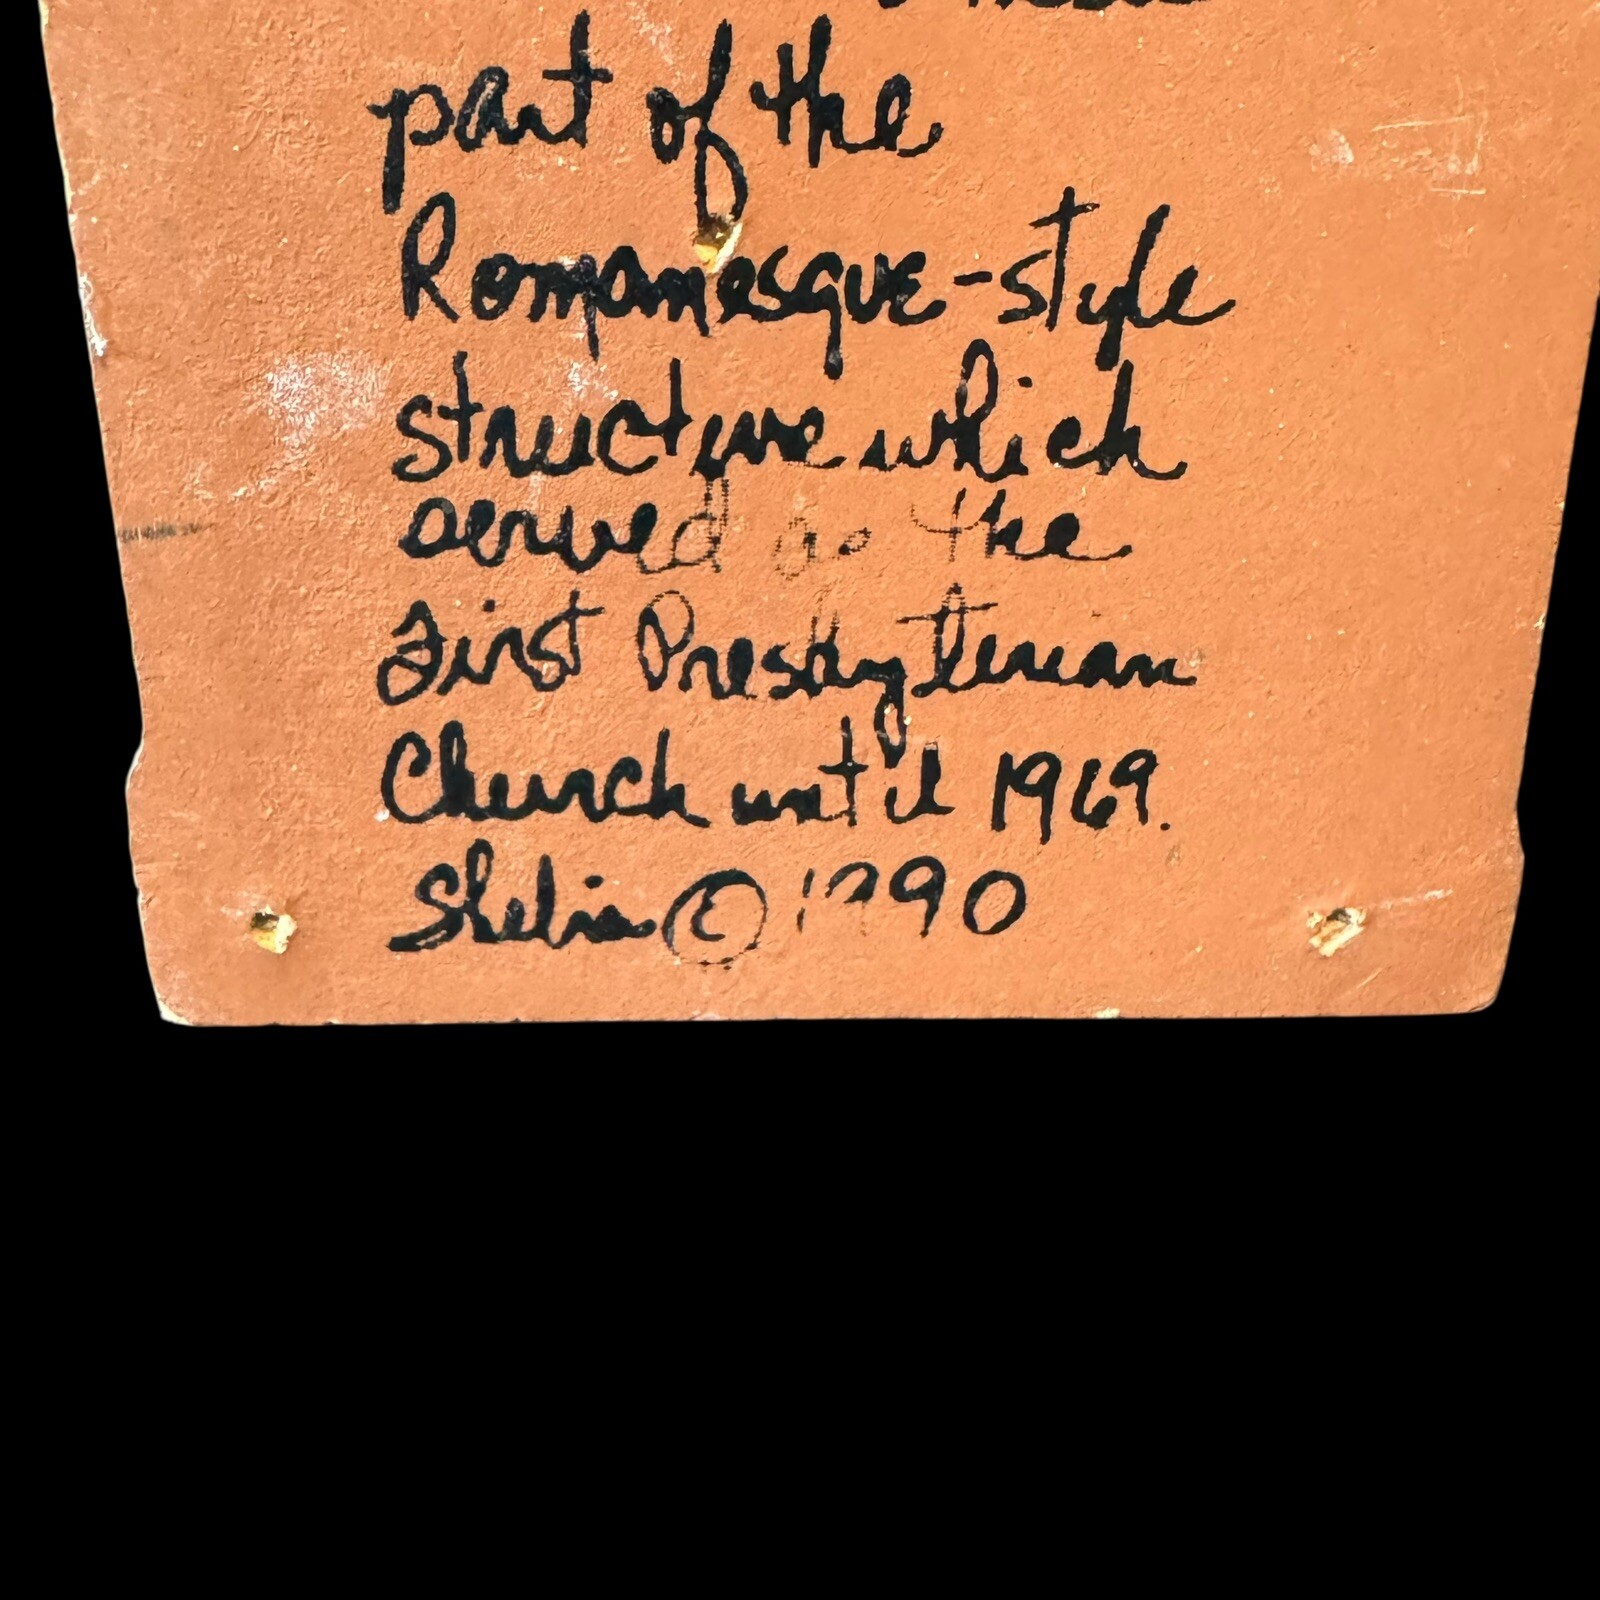 part of the
Romanesque-style
structure which
served as the
First Presbyterian
Church until 1969.
Shelia © 1990